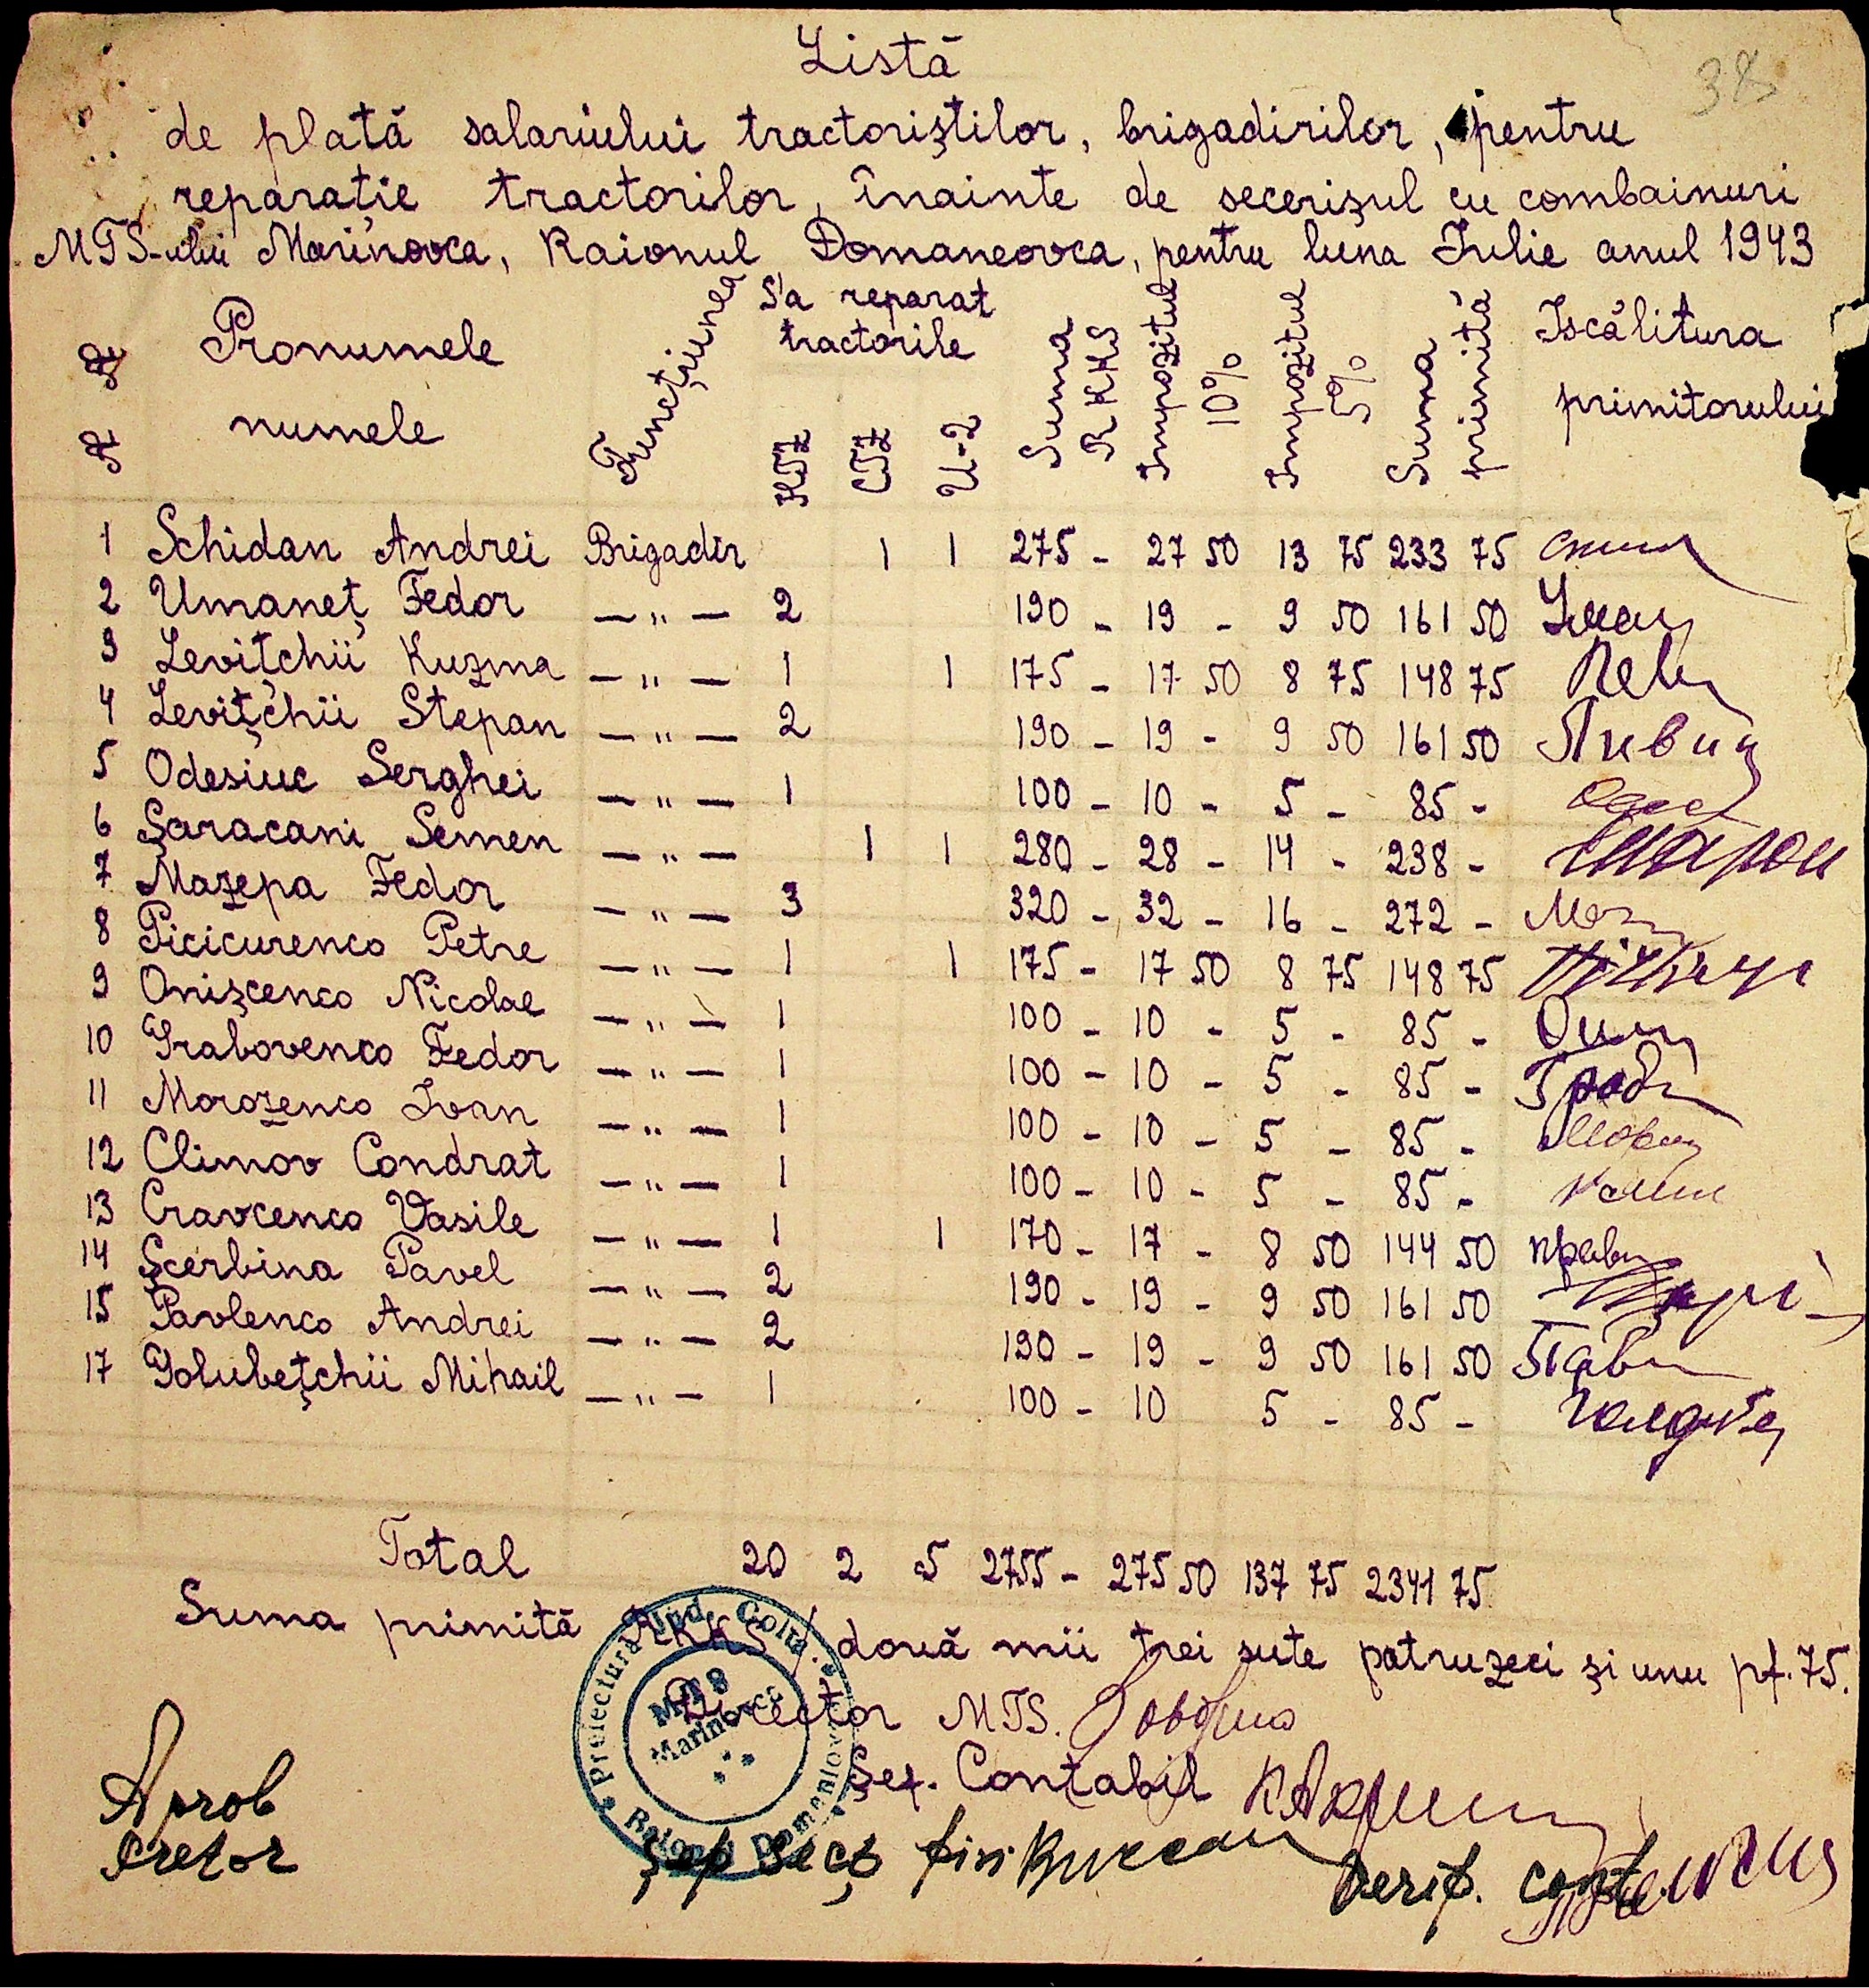 38
Listă
de plată salariului tractoriștilor, brigadirilor, pentru
reparație tractorilor, înainte de secerișul cu combainuri
MTS-ului Marinovca, Raionul Domaneovca, pentru luna Iulie anul 1943
№ № Pronumele numele Funcțiunea S'a reparat tractorile ХТЗ СТЗ У-2 Suma RKKS Impozitul 10% Impozitul 5% Suma primită Iscălitura primitorului
1 Schidan Andrei Brigadir 1 1 275 - 27 50 13 75 233 75
2 Umaneț Fedor — " — 2 190 - 19 - 9 50 161 50
3 Levițchii Kuzma — " — 1 1 175 - 17 50 8 75 148 75
4 Levițchii Stepan — " — 2 190 - 19 - 9 50 161 50
5 Odesiuc Serghei — " — 1 100 - 10 - 5 - 85 -
6 Șaracani Semen — " — 1 1 280 - 28 - 14 - 238 -
7 Mazepa Fedor — " — 3 320 - 32 - 16 - 272 -
8 Picicurenco Petre — " — 1 1 175 - 17 50 8 75 148 75
9 Onișcenco Nicolae — " — 1 100 - 10 - 5 - 85 -
10 Grabovenco Fedor — " — 1 100 - 10 - 5 - 85 -
11 Morozenco Ivan — " — 1 100 - 10 - 5 - 85 -
12 Climov Condrat — " — 1 100 - 10 - 5 - 85 -
13 Cravcenco Vasile — " — 1 1 170 - 17 - 8 50 144 50
14 Șcerbina Pavel — " — 2 190 - 19 - 9 50 161 50
15 Pavlenco Andrei — " — 2 190 - 19 - 9 50 161 50
17 Golubețchii Mihail — " — 1 100 - 10 5 - 85 -
Total 20 2 5 2755 - 275 50 137 75 2341 75
Suma primită RKKS /. două mii trei sute patruzeci și unu pf. 75.
Director MTS.
Șef. Contabil
Prefectura Jud. Golta
Raionul Domaniovca
MTS
Marinovca
Aprob
Pretor
Șef Secț fin
Verif. cont